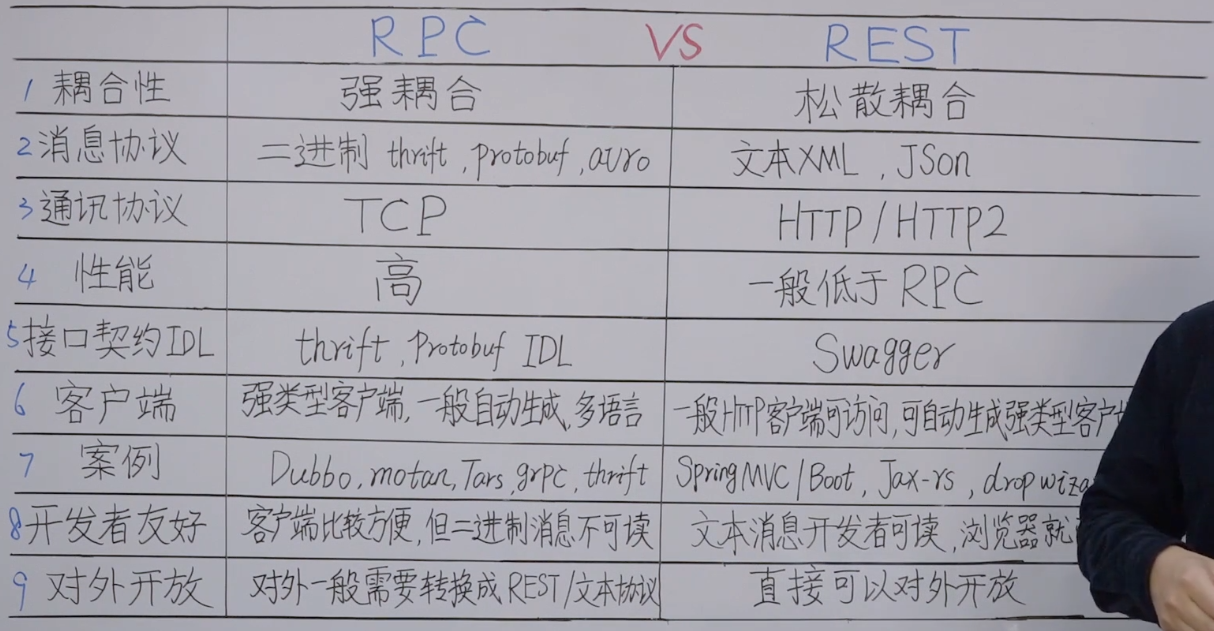 RPC VS REST
1 耦合性 强耦合 松散耦合
2 消息协议 二进制 thrift, protobuf, avro 文本XML, JSon
3 通讯协议 TCP HTTP/HTTP2
4 性能 高 一般低于RPC
5 接口契约IDL thrift, Protobuf IDL Swagger
6 客户端 强类型客户端, 一般自动生成, 多语言 一般HTTP客户端可访问, 可自动生成强类型客户
7 案例 Dubbo, motan, Tars, grpc, thrift SpringMVC/Boot, Jax-rs, dropwiza
8 开发者友好 客户端比较方便, 但二进制消息不可读 文本消息开发者可读, 浏览器就
9 对外开放 对外一般需要转换成REST/文本协议 直接可以对外开放